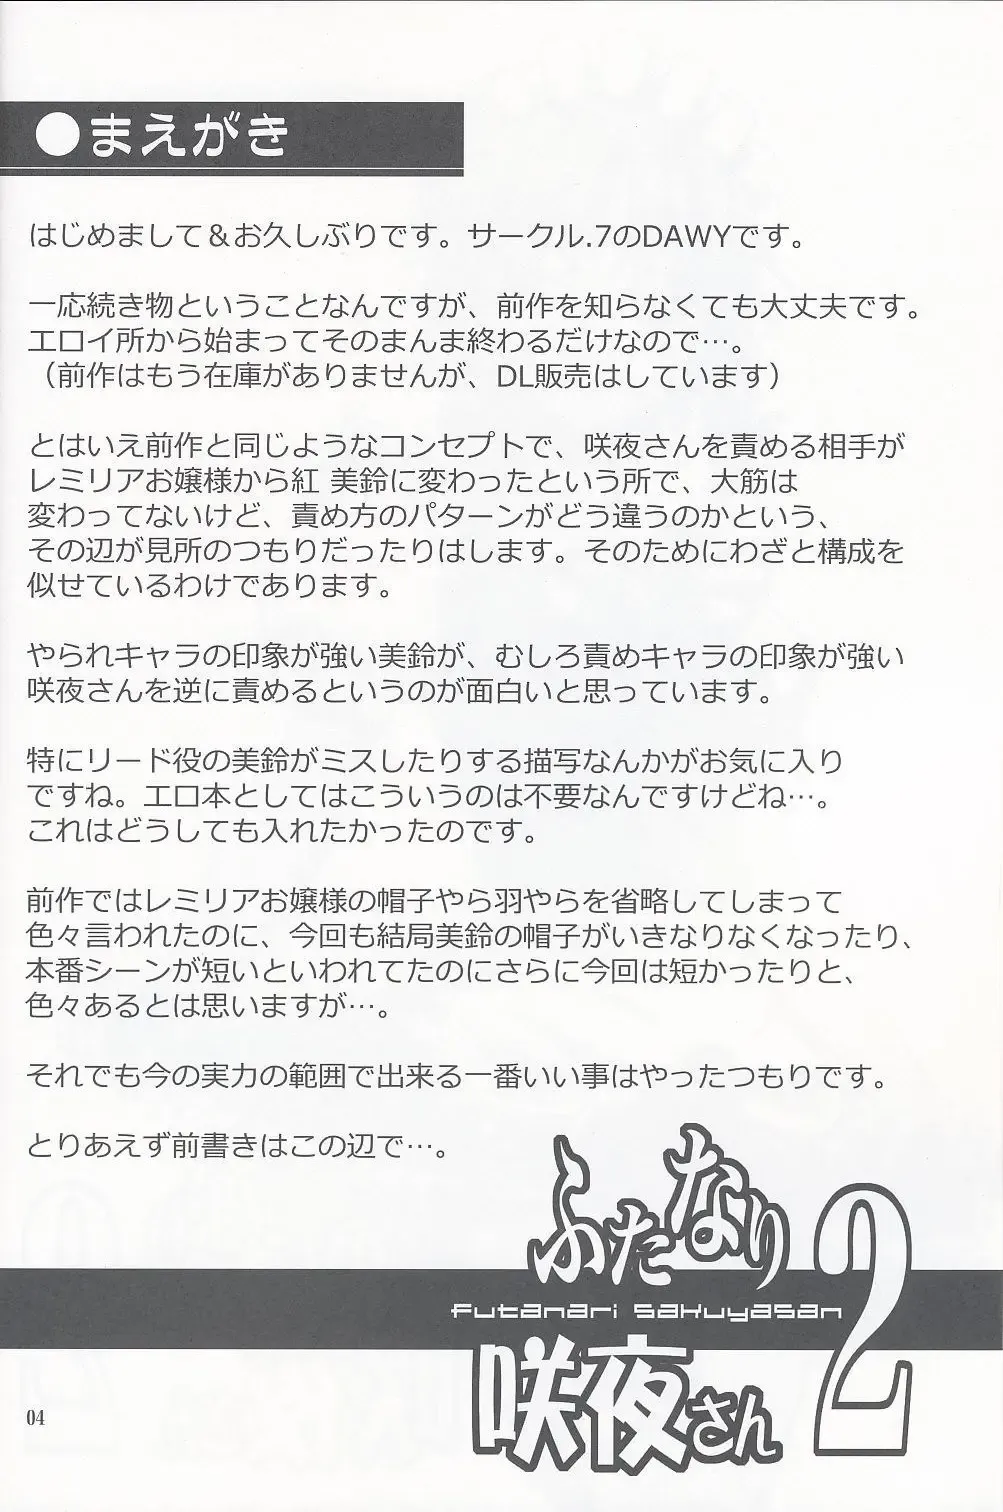 ●まえがき
はじめまして＆お久しぶりです。サークル.7のDAWYです。
一応続き物ということなんですが、前作を知らなくても大丈夫です。
エロイ所から始まってそのまんま終わるだけなので…。
（前作はもう在庫がありませんが、DL販売はしています）
とはいえ前作と同じようなコンセプトで、咲夜さんを責める相手が
レミリアお嬢様から紅 美鈴に変わったという所で、大筋は
変わってないけど、責め方のパターンがどう違うのかという、
その辺が見所のつもりだったりはします。そのためにわざと構成を
似せているわけであります。
やられキャラの印象が強い美鈴が、むしろ責めキャラの印象が強い
咲夜さんを逆に責めるというのが面白いと思っています。
特にリード役の美鈴がミスしたりする描写なんかがお気に入り
ですね。エロ本としてはこういうのは不要なんですけどね…。
これはどうしても入れたかったのです。
前作ではレミリアお嬢様の帽子やら羽やらを省略してしまって
色々言われたのに、今回も結局美鈴の帽子がいきなりなくなったり、
本番シーンが短いといわれてたのにさらに今回は短かったりと、
色々あるとは思いますが…。
それでも今の実力の範囲で出来る一番いい事はやったつもりです。
とりあえず前書きはこの辺で…。
ふたなり
futanari sakuyasan
咲夜さん
2
04